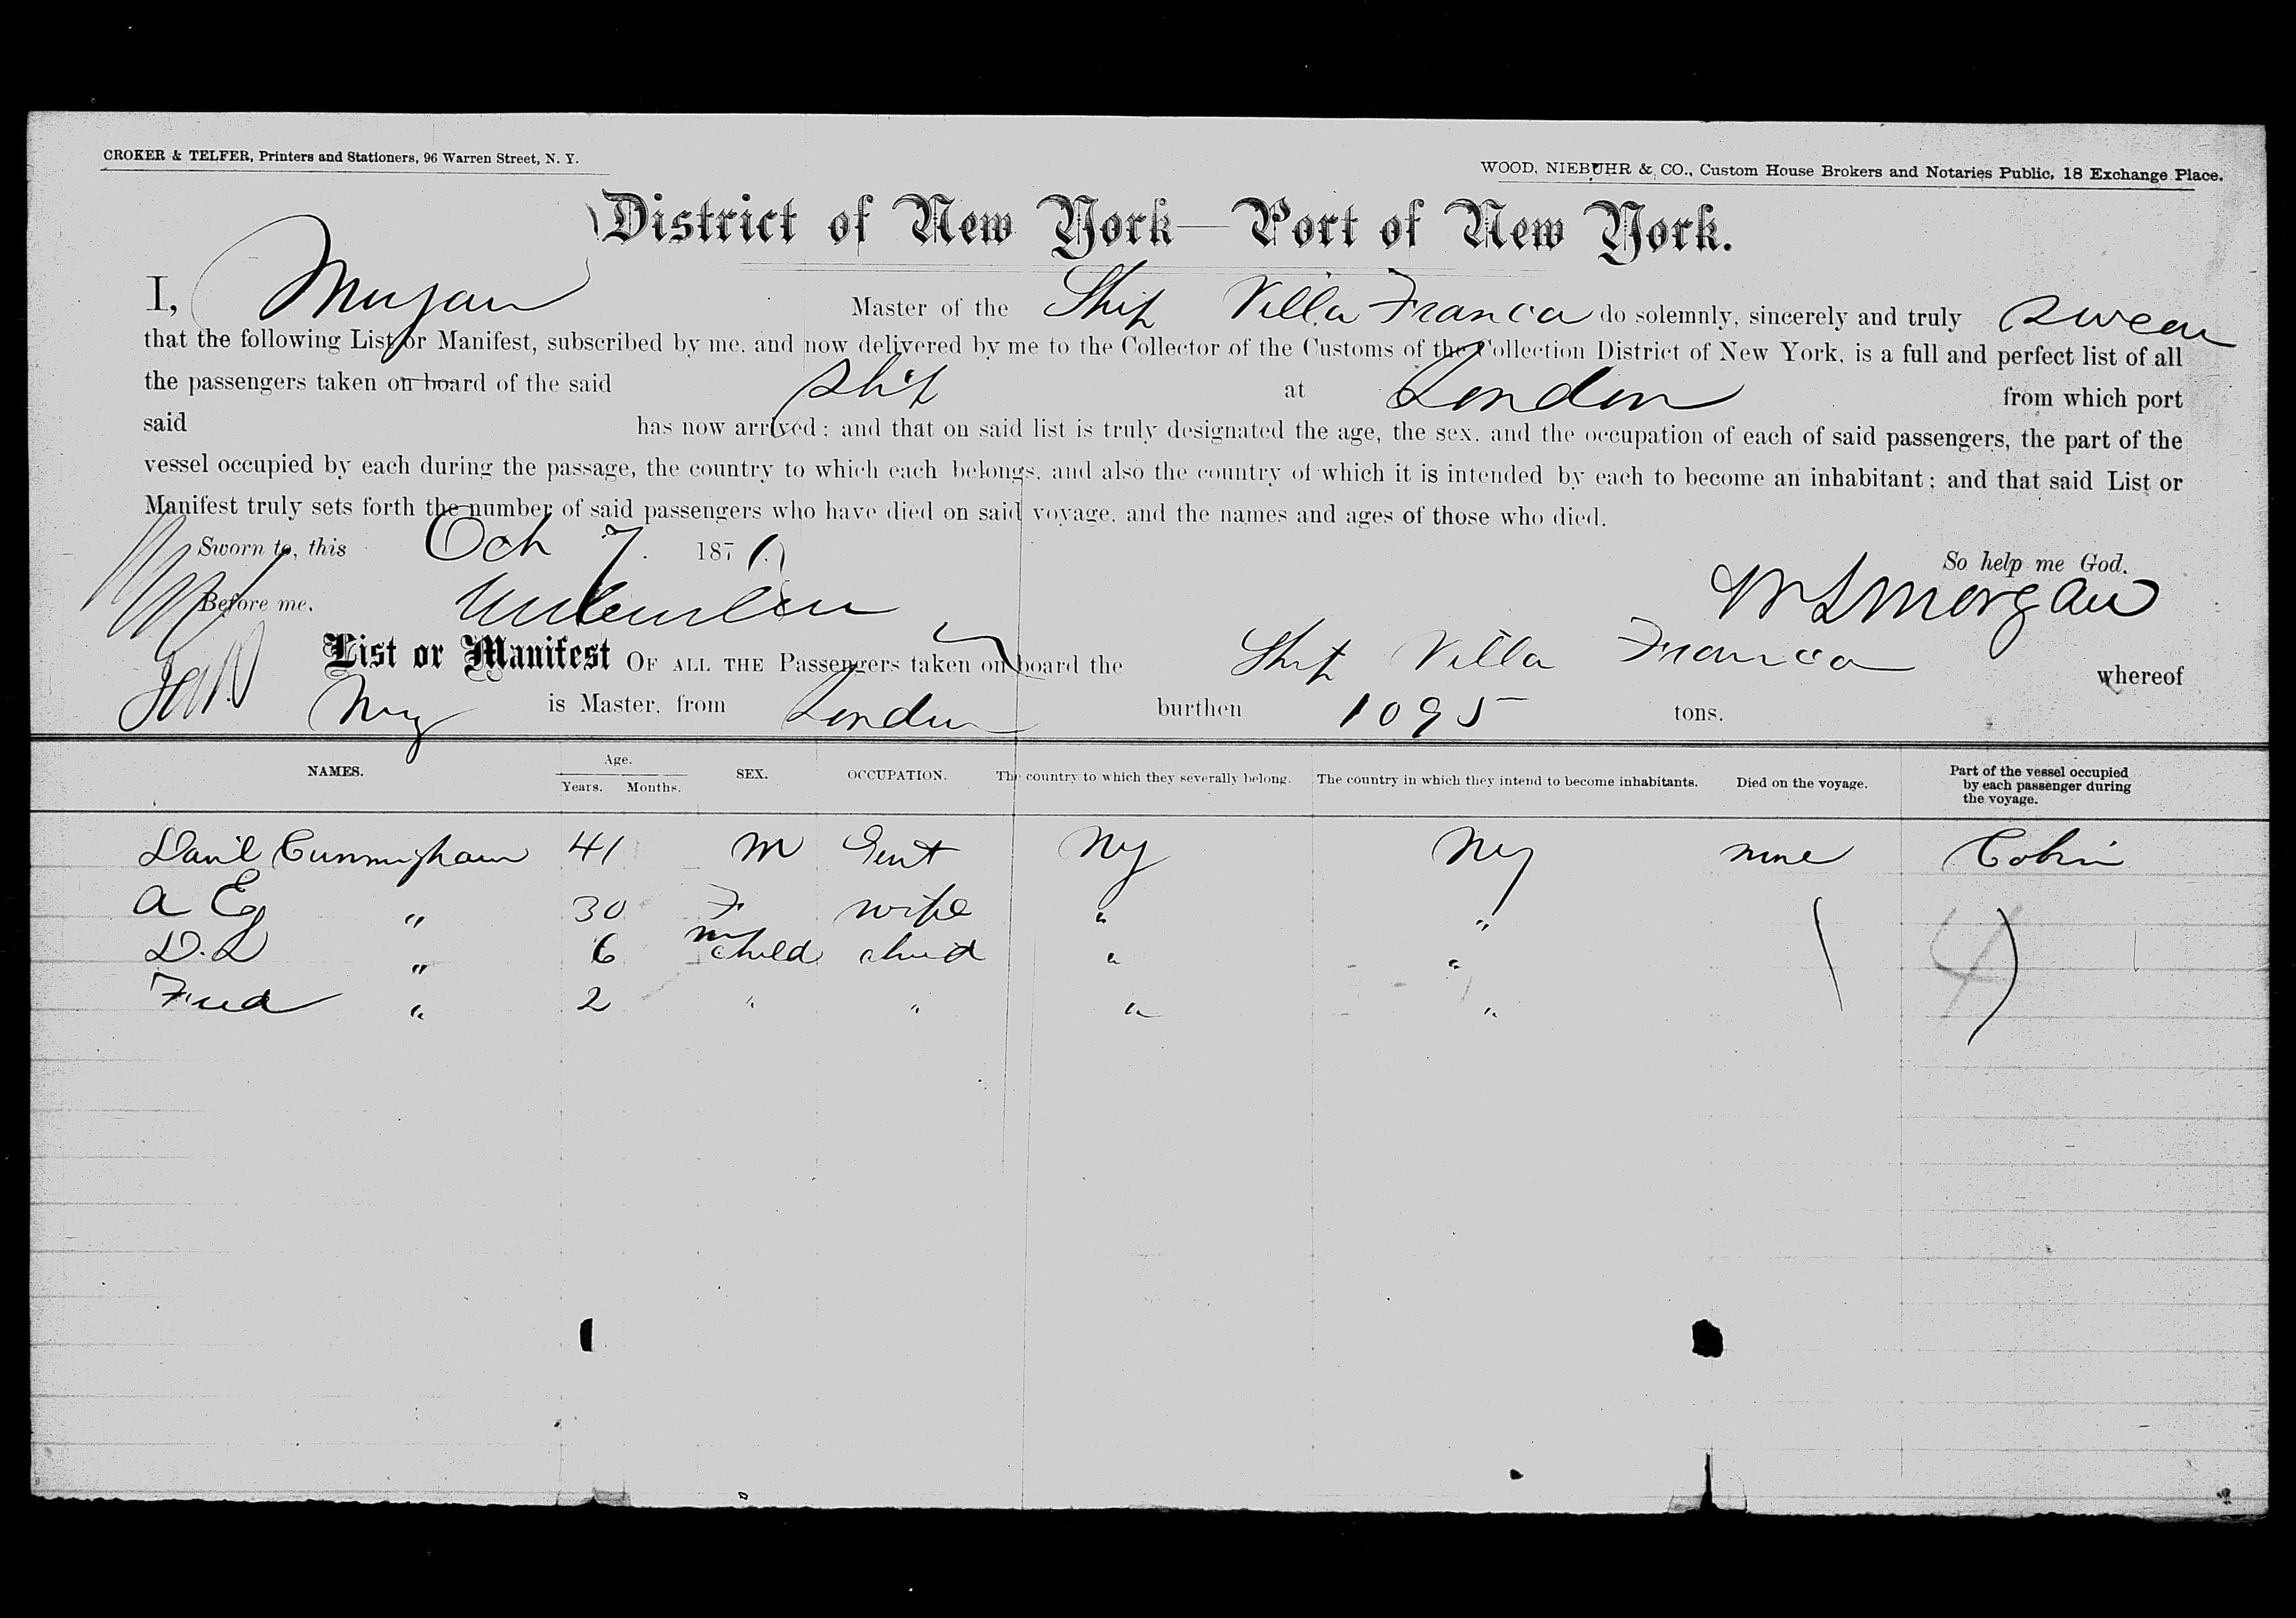 CROKER & TELFER, Printers and Stationers, 96 Warren Street, N. Y.
WOOD, NIEBUHR & CO., Custom House Brokers and Notaries Public, 18 Exchange Place.
District of New York—Port of New York.
I, Morgan Master of the Ship Villa Franca do solemnly, sincerely and truly swear
that the following List or Manifest, subscribed by me, and now delivered by me to the Collector of the Customs of the Collection District of New York, is a full and perfect list of all
the passengers taken on board of the said ship at London from which port
said has now arrived; and that on said list is truly designated the age, the sex, and the occupation of each of said passengers, the part of the
vessel occupied by each during the passage, the country to which each belongs, and also the country of which it is intended by each to become an inhabitant; and that said List or
Manifest truly sets forth the number of said passengers who have died on said voyage, and the names and ages of those who died.
Sworn to, this Oct 7. 1871 So help me God.
Before me. W L Morgan
List or Manifest OF ALL THE Passengers taken on board the Ship Villa Franca whereof
is Master, from London burthen 1095 tons.
NAMES. Age. Years. Months. SEX. OCCUPATION. The country to which they severally belong. The country in which they intend to become inhabitants. Died on the voyage. Part of the vessel occupied by each passenger during the voyage.
Danl Cunningham 41 M Gent Ny Ny none Cabin
A E " 30 F wife " "
D. D " 6 m child child " "
Fred " 2 " " " "
4